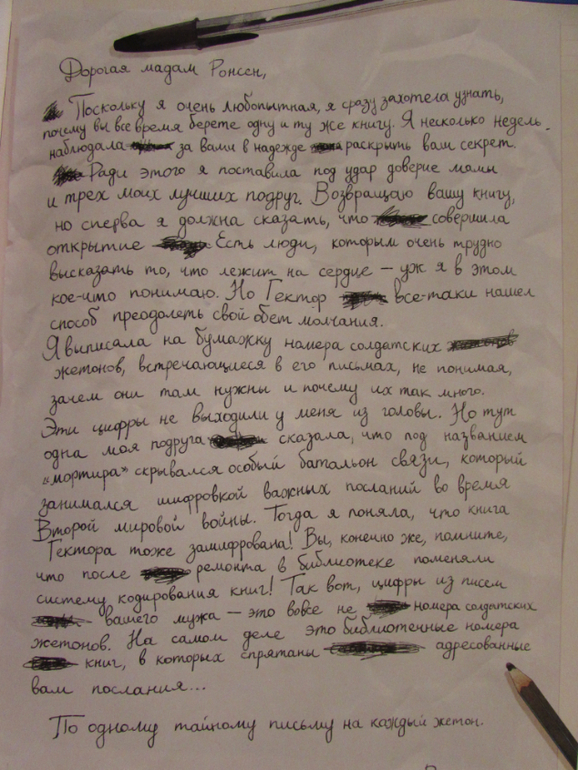 Дорогая мадам Ронсен,
Поскольку я очень любопытная, я сразу захотела узнать,
почему вы все время берете одну и ту же книгу. Я несколько недель
наблюдала за вами в надежде раскрыть ваш секрет.
Ради этого я поставила под удар доверие мамы
и трех моих лучших подруг. Возвращаю вашу книгу,
но сперва я должна сказать, что совершила
открытие. Есть люди, которым очень трудно
высказать то, что лежит на сердце – уж я в этом
кое-что понимаю. Но Гектор все-таки нашел
способ преодолеть свой обет молчания.
Я выписала на бумажку номера солдатских
жетонов, встречающиеся в его письмах, не понимая,
зачем они там нужны и почему их так много.
Эти цифры не выходили у меня из головы. Но тут
одна моя подруга сказала, что под названием
«мортира» скрывался особый батальон связи, который
занимался шифровкой важных посланий во время
Второй мировой войны. Тогда я поняла, что книга
Гектора тоже зашифрована! Вы, конечно же, помните,
что после ремонта в библиотеке поменяли
систему кодирования книг! Так вот, цифры из писем
вашего мужа – это вовсе не номера солдатских
жетонов. На самом деле это библиотечные номера
книг, в которых спрятаны адресованные
вам послания...
По одному тайному письму на каждый жетон.